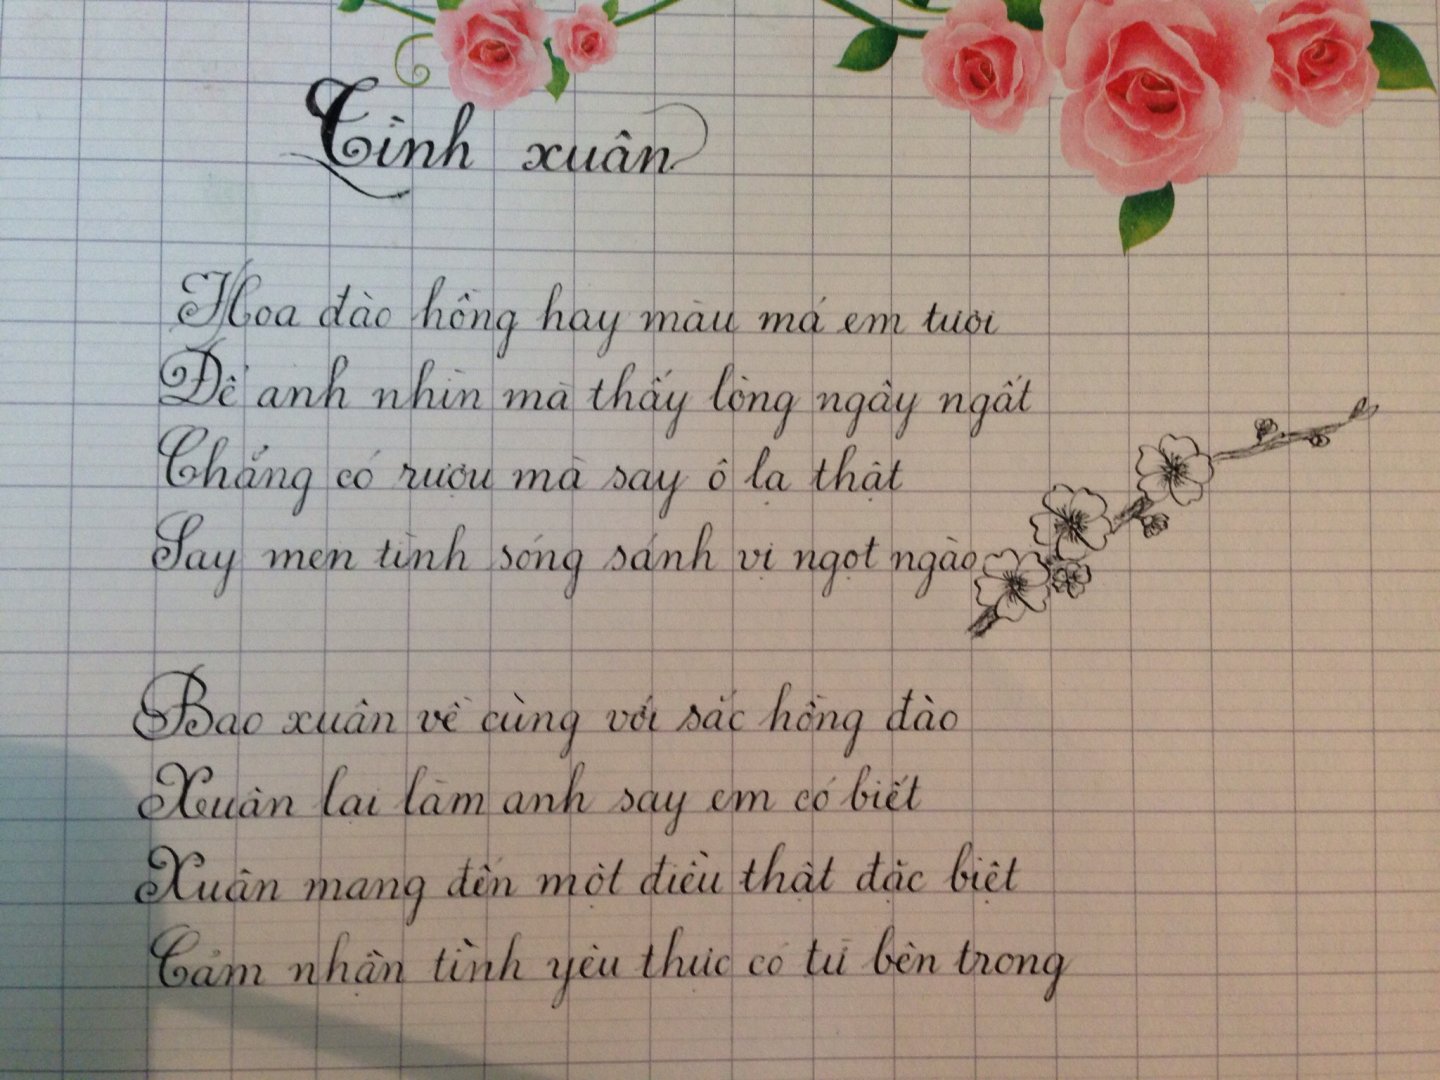 Tình xuân
Hoa đào hồng hay màu má em tươi
Để anh nhìn mà thấy lòng ngây ngất
Chẳng có rượu mà say ô lạ thật
Say men tình sóng sánh vị ngọt ngào
Bao xuân về cùng với sắc hồng đào
Xuân lại làm anh say em có biết
Xuân mang đến một điều thật đặc biệt
Cảm nhận tình yêu thực có từ bên trong